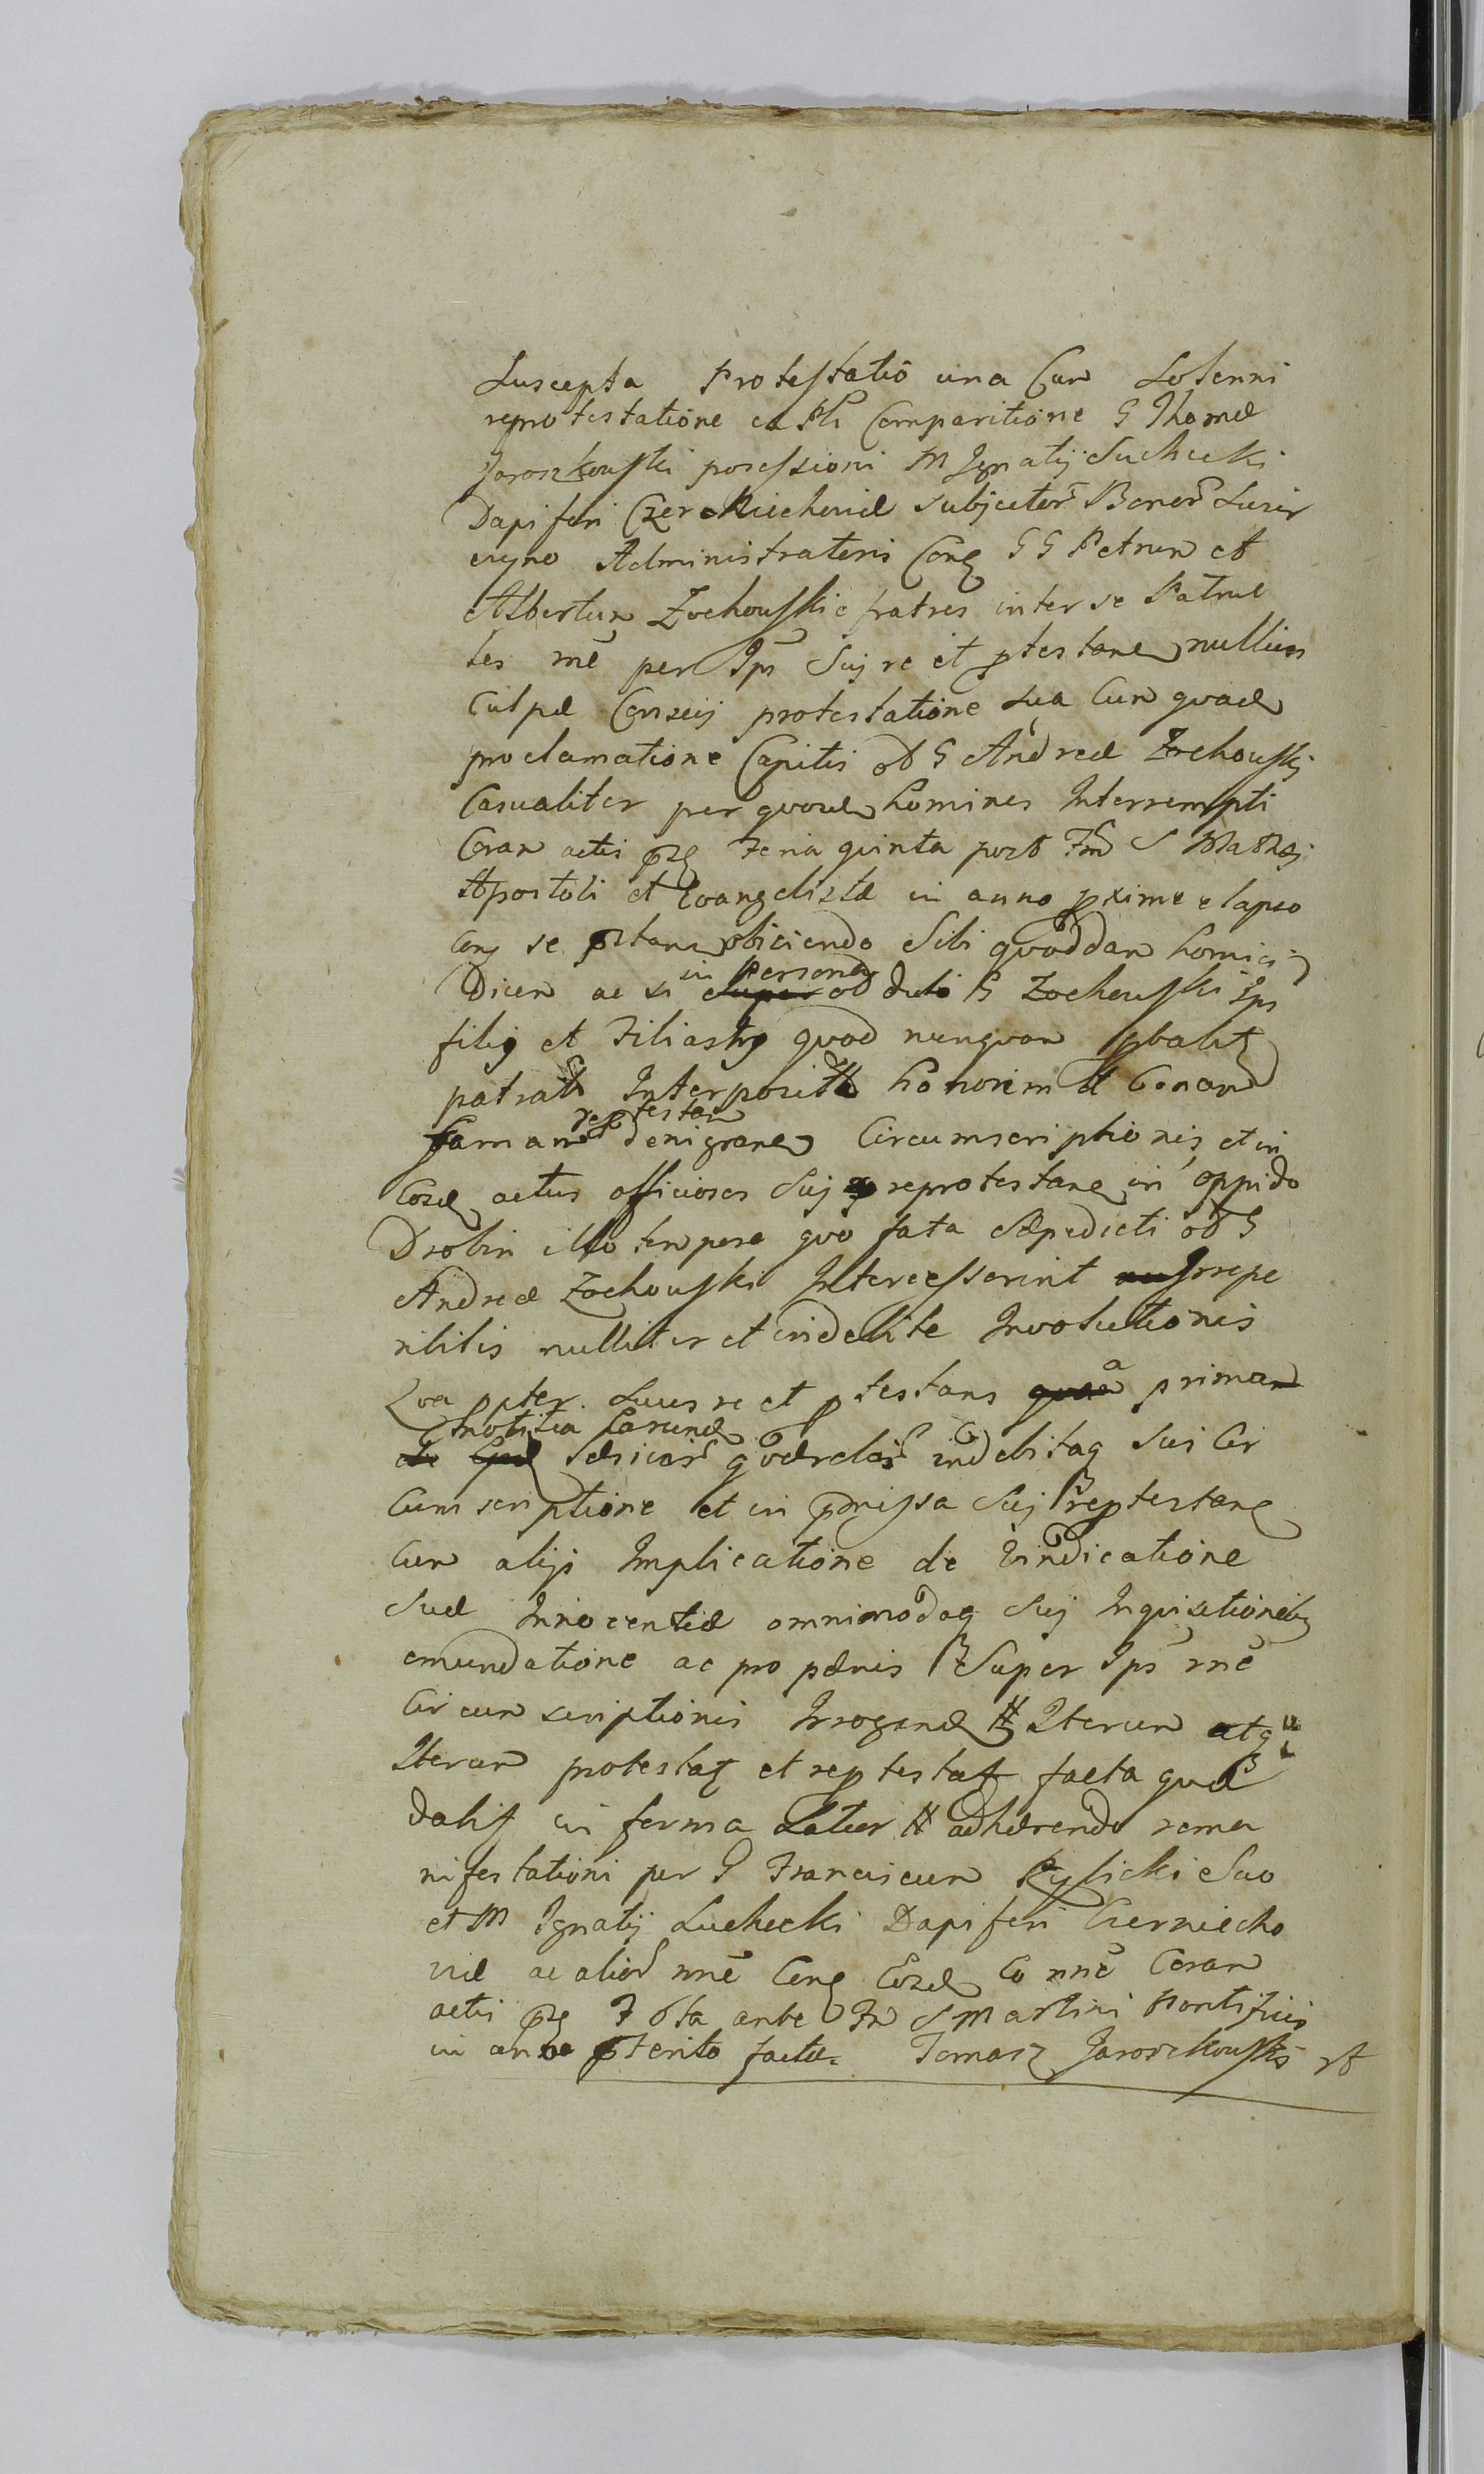 Suscepta Protestatio una Cum Solenni
reprotestatione ex psli Comparitione G Thomæ
Jaroszkowski possessioni M Ignatij Suchecki
Dapiferi Czerniechoviæ subjector Bonor Susir
Administratoris Cong G G Petrum et
Albertum Zochowskie fratres inter se Patrue
les nne per Ips Suj re et ptestane nullius
Culpæ Conscij protestatione sua Cum quad
proclamatione Capitis od G Andreæ Zochowskj
Casualiter per quosd homines Interrempti
Coram actis pzg Feria quinta post Fm S Mathæj
Apostoli et Evangelistæ in anno pxime elapso
Cong se ptane obiciendo Sibi quoddam homici
Dium ac si in persona od duli G Zochowski Ips
filij et Filiastrij quod nunquam pbalit
patrati Interposit honorem et bonam
famam reptestan denigrane Circumscriptionis et in
Cosd actus officiosos Suj reprotestane in oppido
Drobin illo tempore quo fata sæpedicti od G
Andreæ Zochowski Intercesserint Irrepe
ribilis nulliter et indebite Involutionis
Qva ppter suus re et ptestans a prima
notitia Earund quærelar indebitaq sui Cir
Cumscriptione et in pmissa Suj reptestane
Cum alijs Implicatione de Vindicatione
Suæ Innocentiæ omnimodaq Suj Inquisitionelq
emundatione ac pro pænis Super Ips nne
Circumscriptionis Irrogand # Iterum atq
Iterum protestat et reptestat facta quæ
dalit in forma Latior # adhærendo rema
nifestationi per G Franciscum Rylicki Suo
et M Ignatij Suchecki Dapiferi Czerniecho
viæ ac alior nne Cong Cosd Co nne Coram
actis pzg F 6ta ante Fm S Martini Pontificis
in anno pterito factæ. Tomasz Jaroszkowski